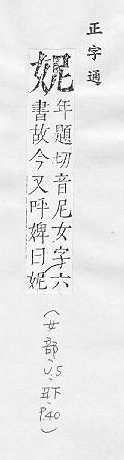 正字通
妮
年題切音尼女字六
書故今又呼婢曰妮
(女部、V.5、丑下、P.40)